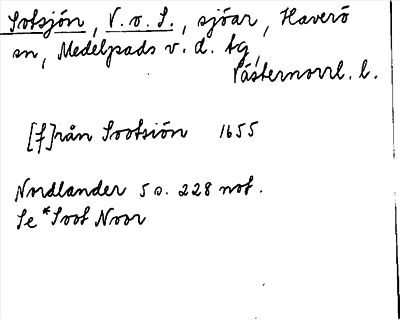 Sotsjön, V. o. S., sjöar, Haverö
sn, Medelpads v. d. tg,
Västernorrl. l.
[f]rån Sootsiön 1655
Nordlander 5 s. 228 not.
Se *Soot Noor